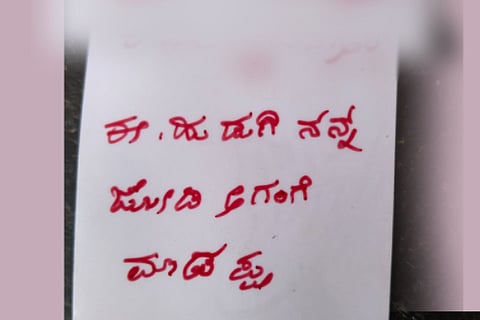 ಈ. ಹುಡುಗಿ ನನ್ನೇ
ಜೋಡಿ ಆಗಂಗೆ
ಮಾಡಪ್ಪ